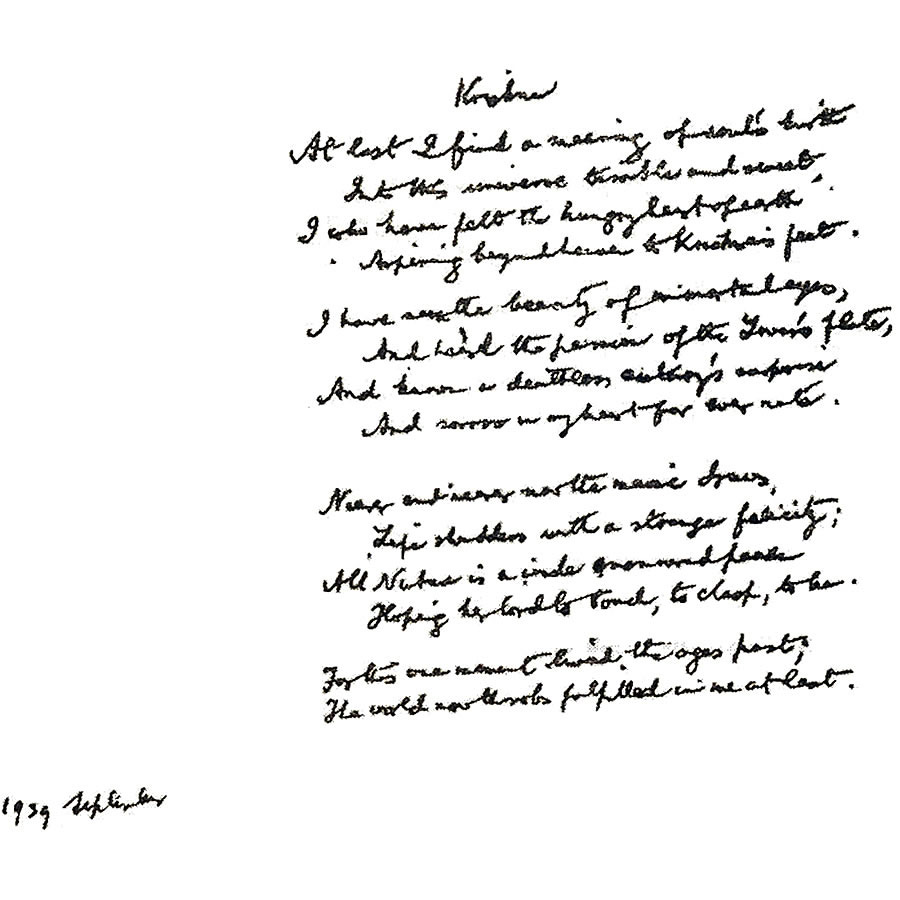 Krishna
At last I find a meaning of soul's birth
Into this universe terrible and sweet,
I who have felt the hungry heart of earth
Aspiring beyond heaven to Krishna's feet.
I have seen the beauty of immortal eyes,
And heard the passion of the Lover's flute,
And known a deathless ecstasy's surprise
And sorrow in my heart for ever mute.
Nearer and nearer now the music draws,
Life shudders with a strange felicity;
All Nature is a wide enamoured pause
Hoping her lord to touch, to clasp, to be.
For this one moment lived the ages past;
The world now throbs fulfilled in me at last.
1939 September